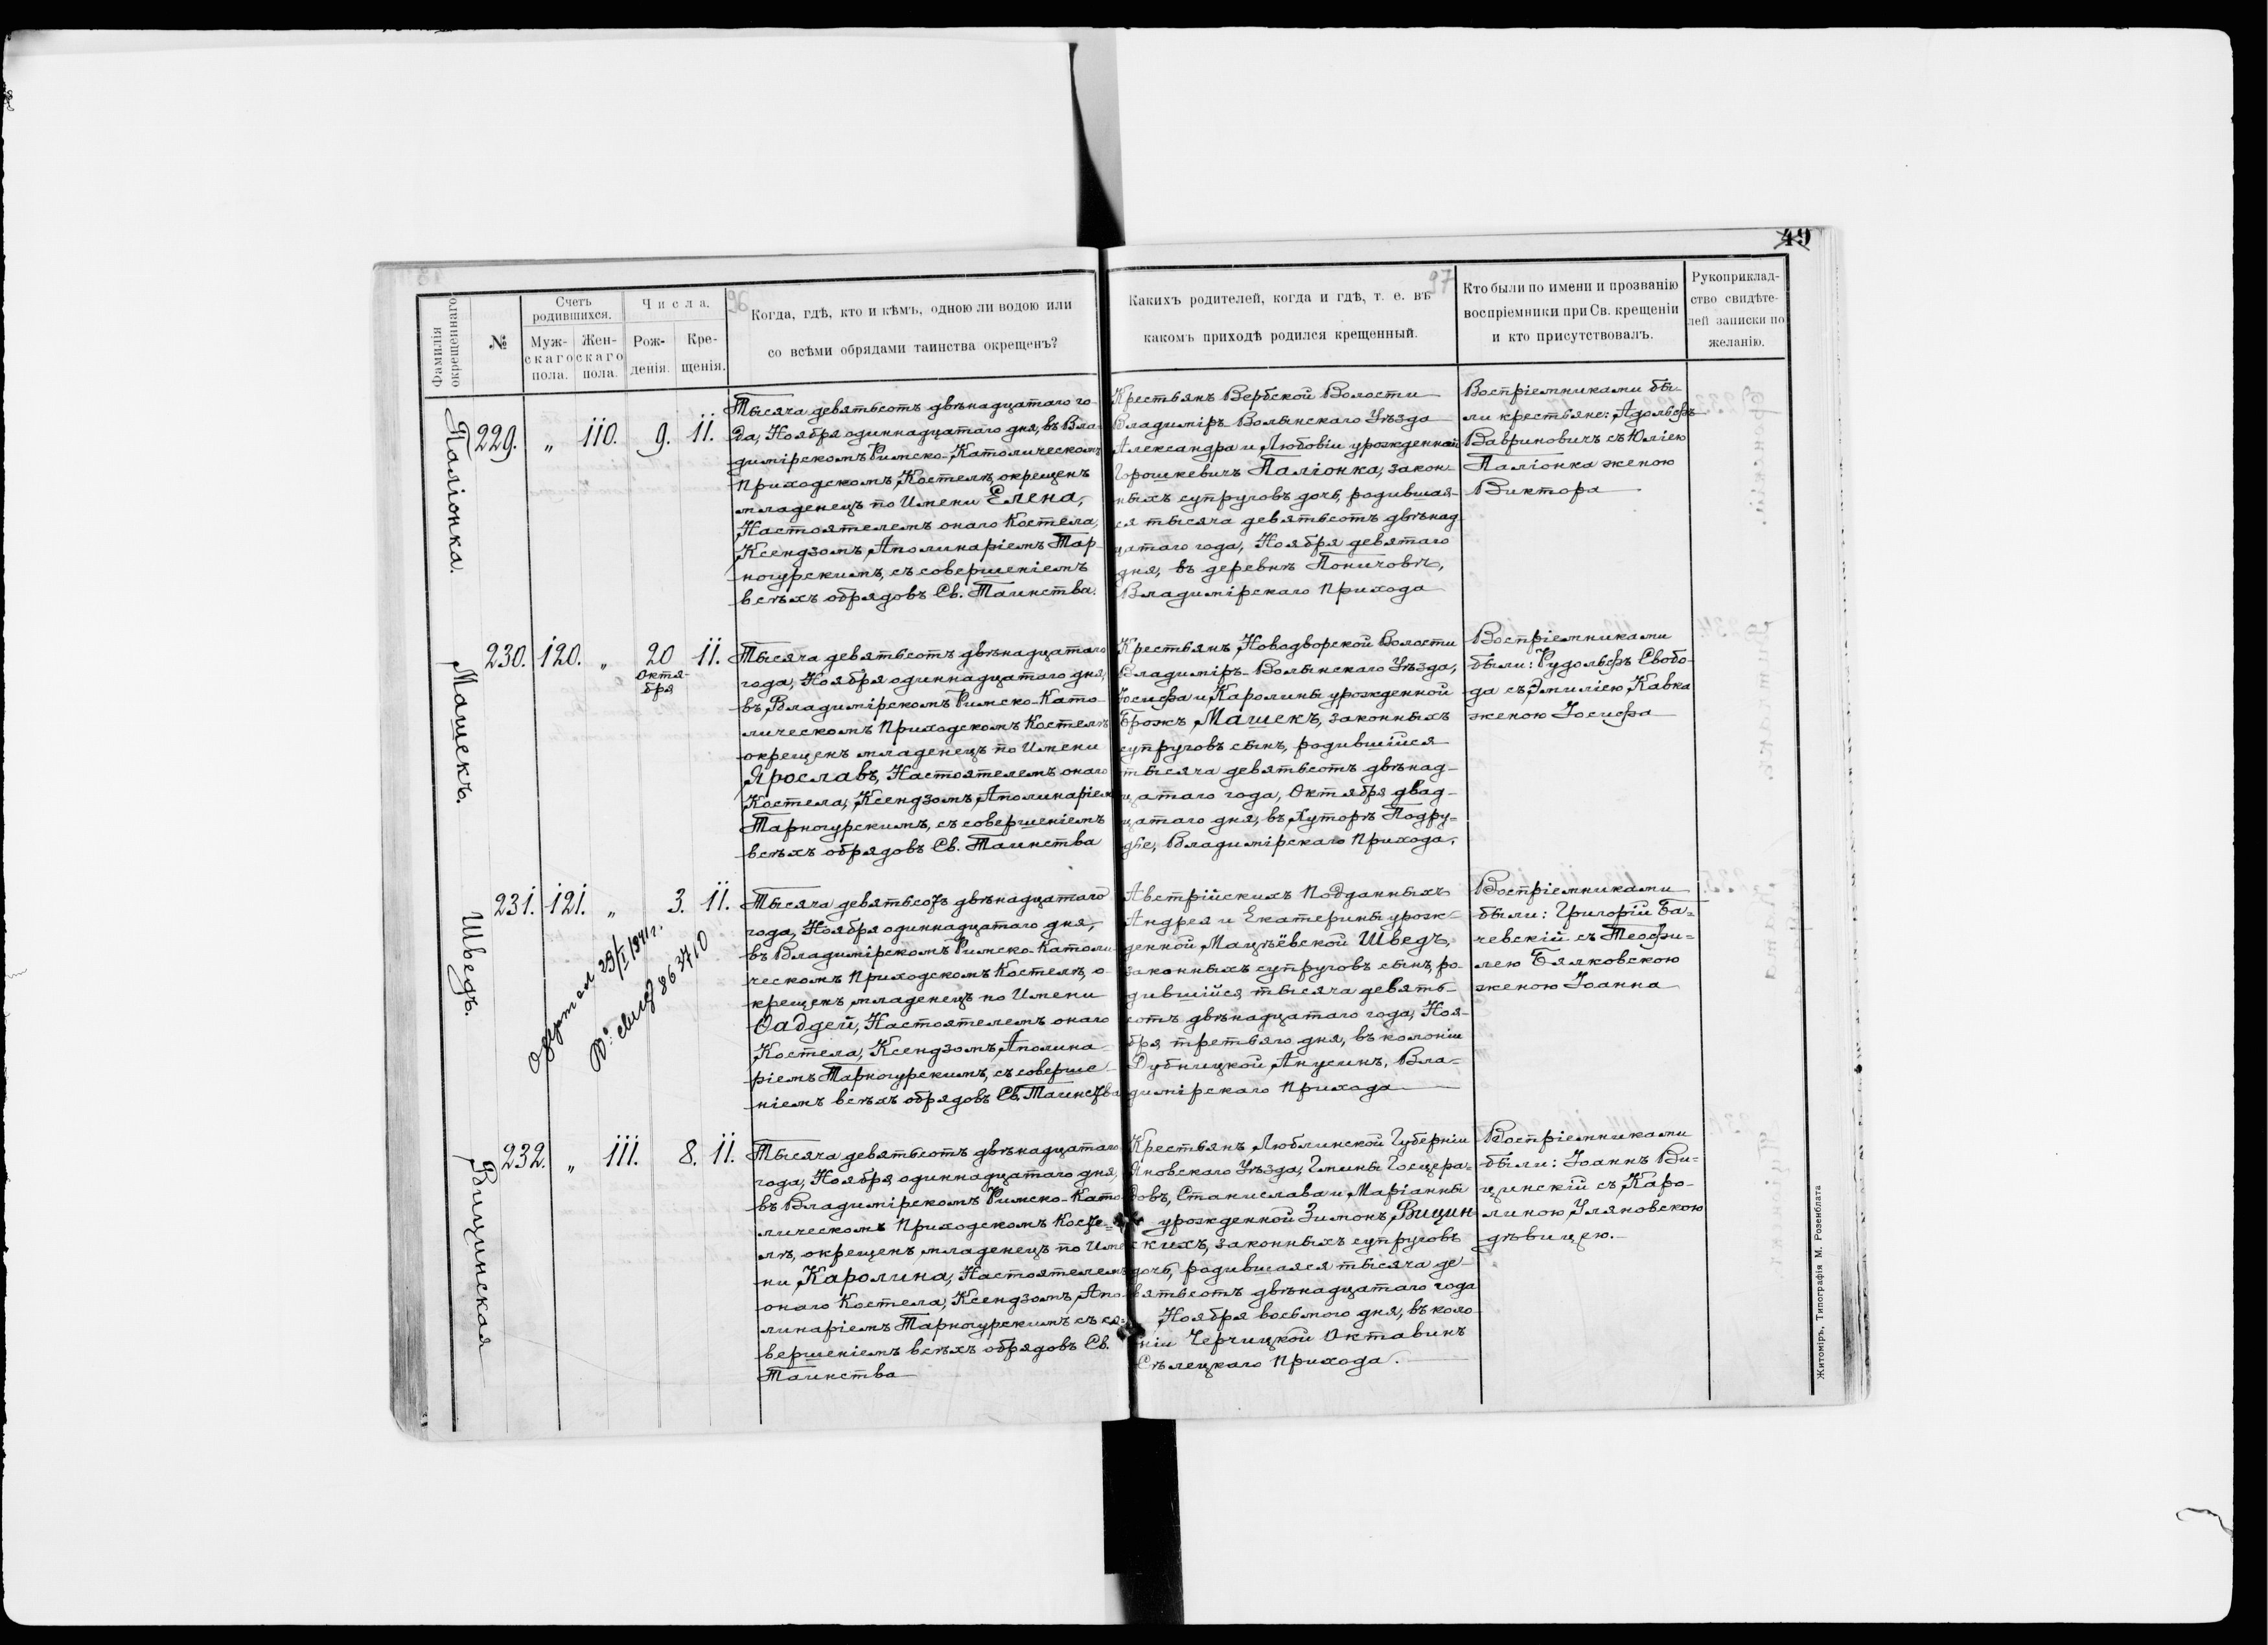 49
96
97
Фамилія окрещеннаго.
№
Счетъ родившихся.
Муж-скаго пола.
Жен-скаго пола.
Числа.
Рож-денія.
Кре-щенія.
Когда, гдѣ, кто и кѣмъ, одною ли водою или
со всѣми обрядами таинства окрещенъ?
Какихъ родителей, когда и гдѣ, т. е. въ
какомъ приходѣ родился крещенный.
Кто были по имени и прозванію
воспріемники при Св. крещеніи
и кто присутствовалъ.
Рукоприклад-
ство свидѣте-
лей записки по
желанію.
Паліонка.
229. „ 110. 9. 11.
Тысяча девятьсотъ двѣнадцатаго го-
да, Ноября одиннадцатаго дня, въ Вла-
димірскомъ Римско-Католическомъ
Приходскомъ Костелѣ, окрещенъ
младенецъ по Имени Елена,
Настоятелемъ онаго Костела,
Ксендзомъ Аполинаріемъ Тар-
ногурскимъ, съ совершеніемъ
всѣхъ обрядовъ Св. Таинства.
Крестьянъ Вербской Волости
Владиміръ Волынскаго Уѣзда
Александра и Любовіи урожденной
Горошкевичъ Паліонка, закон-
ныхъ супруговъ дочь, родившая-
ся тысяча девятьсотъ двѣнад-
цатаго года, Ноября девятаго
дня, въ деревнѣ Поничовѣ,
Владимірскаго Прихода
Воспріемниками бы-
ли крестьяне: Адольфъ
Вавриновичъ съ Юліею
Паліонка женою
Виктора
Машекъ.
230. 120. „ 20 11.
Октя-
бря
Тысяча девятьсотъ двѣнадцатаго
года, Ноября одиннадцатаго дня,
въ Владимірскомъ Римско-Като-
лическомъ Приходскомъ Костелѣ
окрещенъ младенецъ по Имени
Ярославъ, Настоятелемъ онаго
Костела, Ксендзомъ Аполинаріемъ
Тарногурскимъ, съ совершеніемъ
всѣхъ обрядовъ Св. Таинства
Крестьянъ Новодворской Волости
Владиміръ-Волынскаго Уѣзда,
Іосифа и Каролины урожденной
Брожъ Машекъ, законныхъ
супруговъ сынъ, родившійся
тысяча девятьсотъ двѣнад-
цатаго года, Октября двад-
цатаго дня, въ Хуторѣ Подру-
дье, Владимірскаго Прихода.
Воспріемниками
были: Рудольфъ Свобо-
да съ Эмиліею Кавка
женою Іосифа
Шведъ.
231. 121. „ 3. 11.
29/I 1941 г.
863710
Тысяча девятьсотъ двѣнадцатаго
года, Ноября одиннадцатаго дня,
въ Владимірскомъ Римско-Католи-
ческомъ Приходскомъ Костелѣ, о-
крещенъ младенецъ по Имени
Ѳаддей, Настоятелемъ онаго
Костела, Ксендзомъ Аполина-
ріемъ Тарногурскимъ, съ соверше-
ніемъ всѣхъ обрядовъ Св. Таинства
Австрійскихъ Подданныхъ
Андрея и Екатерины урож-
денной Мацѣёвской Шведъ,
законныхъ супруговъ сынъ, ро-
дившійся тысяча девять-
сотъ двѣнадцатаго года, Ноя-
бря третьяго дня, въ колоніи
Дубницкой Анусинъ, Вла-
димірскаго Прихода
Воспріемниками
были: Григорій Ба-
чевскій съ Теофи-
лею Бялковскою
женою Іоанна
Вицинская
232. „ 111. 8. 11.
Тысяча девятьсотъ двѣнадцатаго
года, Ноября одиннадцатаго дня,
въ Владимірскомъ Римско-Като-
лическомъ Приходскомъ Косте-
лѣ, окрещенъ младенецъ по Име-
ни Каролина, Настоятелемъ
онаго Костела, Ксендзомъ Апо-
линаріемъ Тарногурскимъ съ со-
вершеніемъ всѣхъ обрядовъ Св.
Таинства
Крестьянъ Люблинской Губерніи
Яновскаго Уѣзда, Гмины Госцера-
довъ, Станислава и Маріанны
урожденной Зимонъ, Вицин-
скихъ, законныхъ супруговъ
дочь, родившаяся тысяча де-
вятьсотъ двѣнадцатаго года
Ноября восьмого дня, въ коло-
ніи Черчицкой Октавинъ
Сѣлецкаго Прихода.
Воспріемниками
были: Іоаннъ Ви-
цинскій съ Каро-
линою Уляновскою
дѣвицею.
Житоміръ, Типографія М. Розенблата